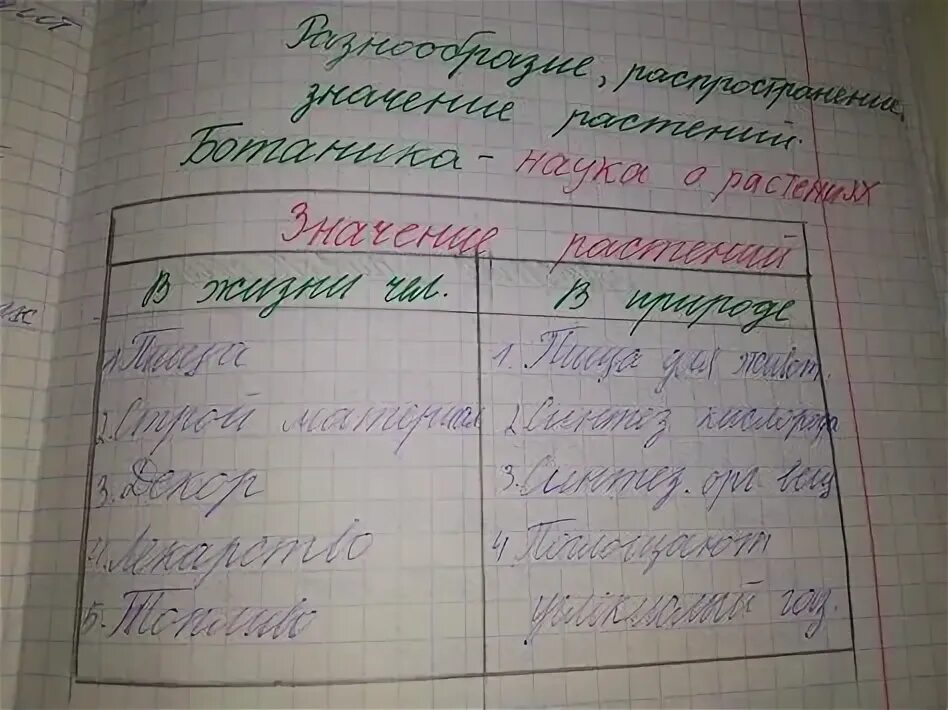 Разнообразие, распространение,
значение растений.
Ботаника - наука о растениях
Значение растений
В жизни чел.
В природе
1. Пища
1. Пища для живот.
2. Строй материал
2. Синтез кислорода
3. Декор
3. Синтез. орг вещ
4. Лекарство
4 Поглощают
углекислый газ.
5. Топливо